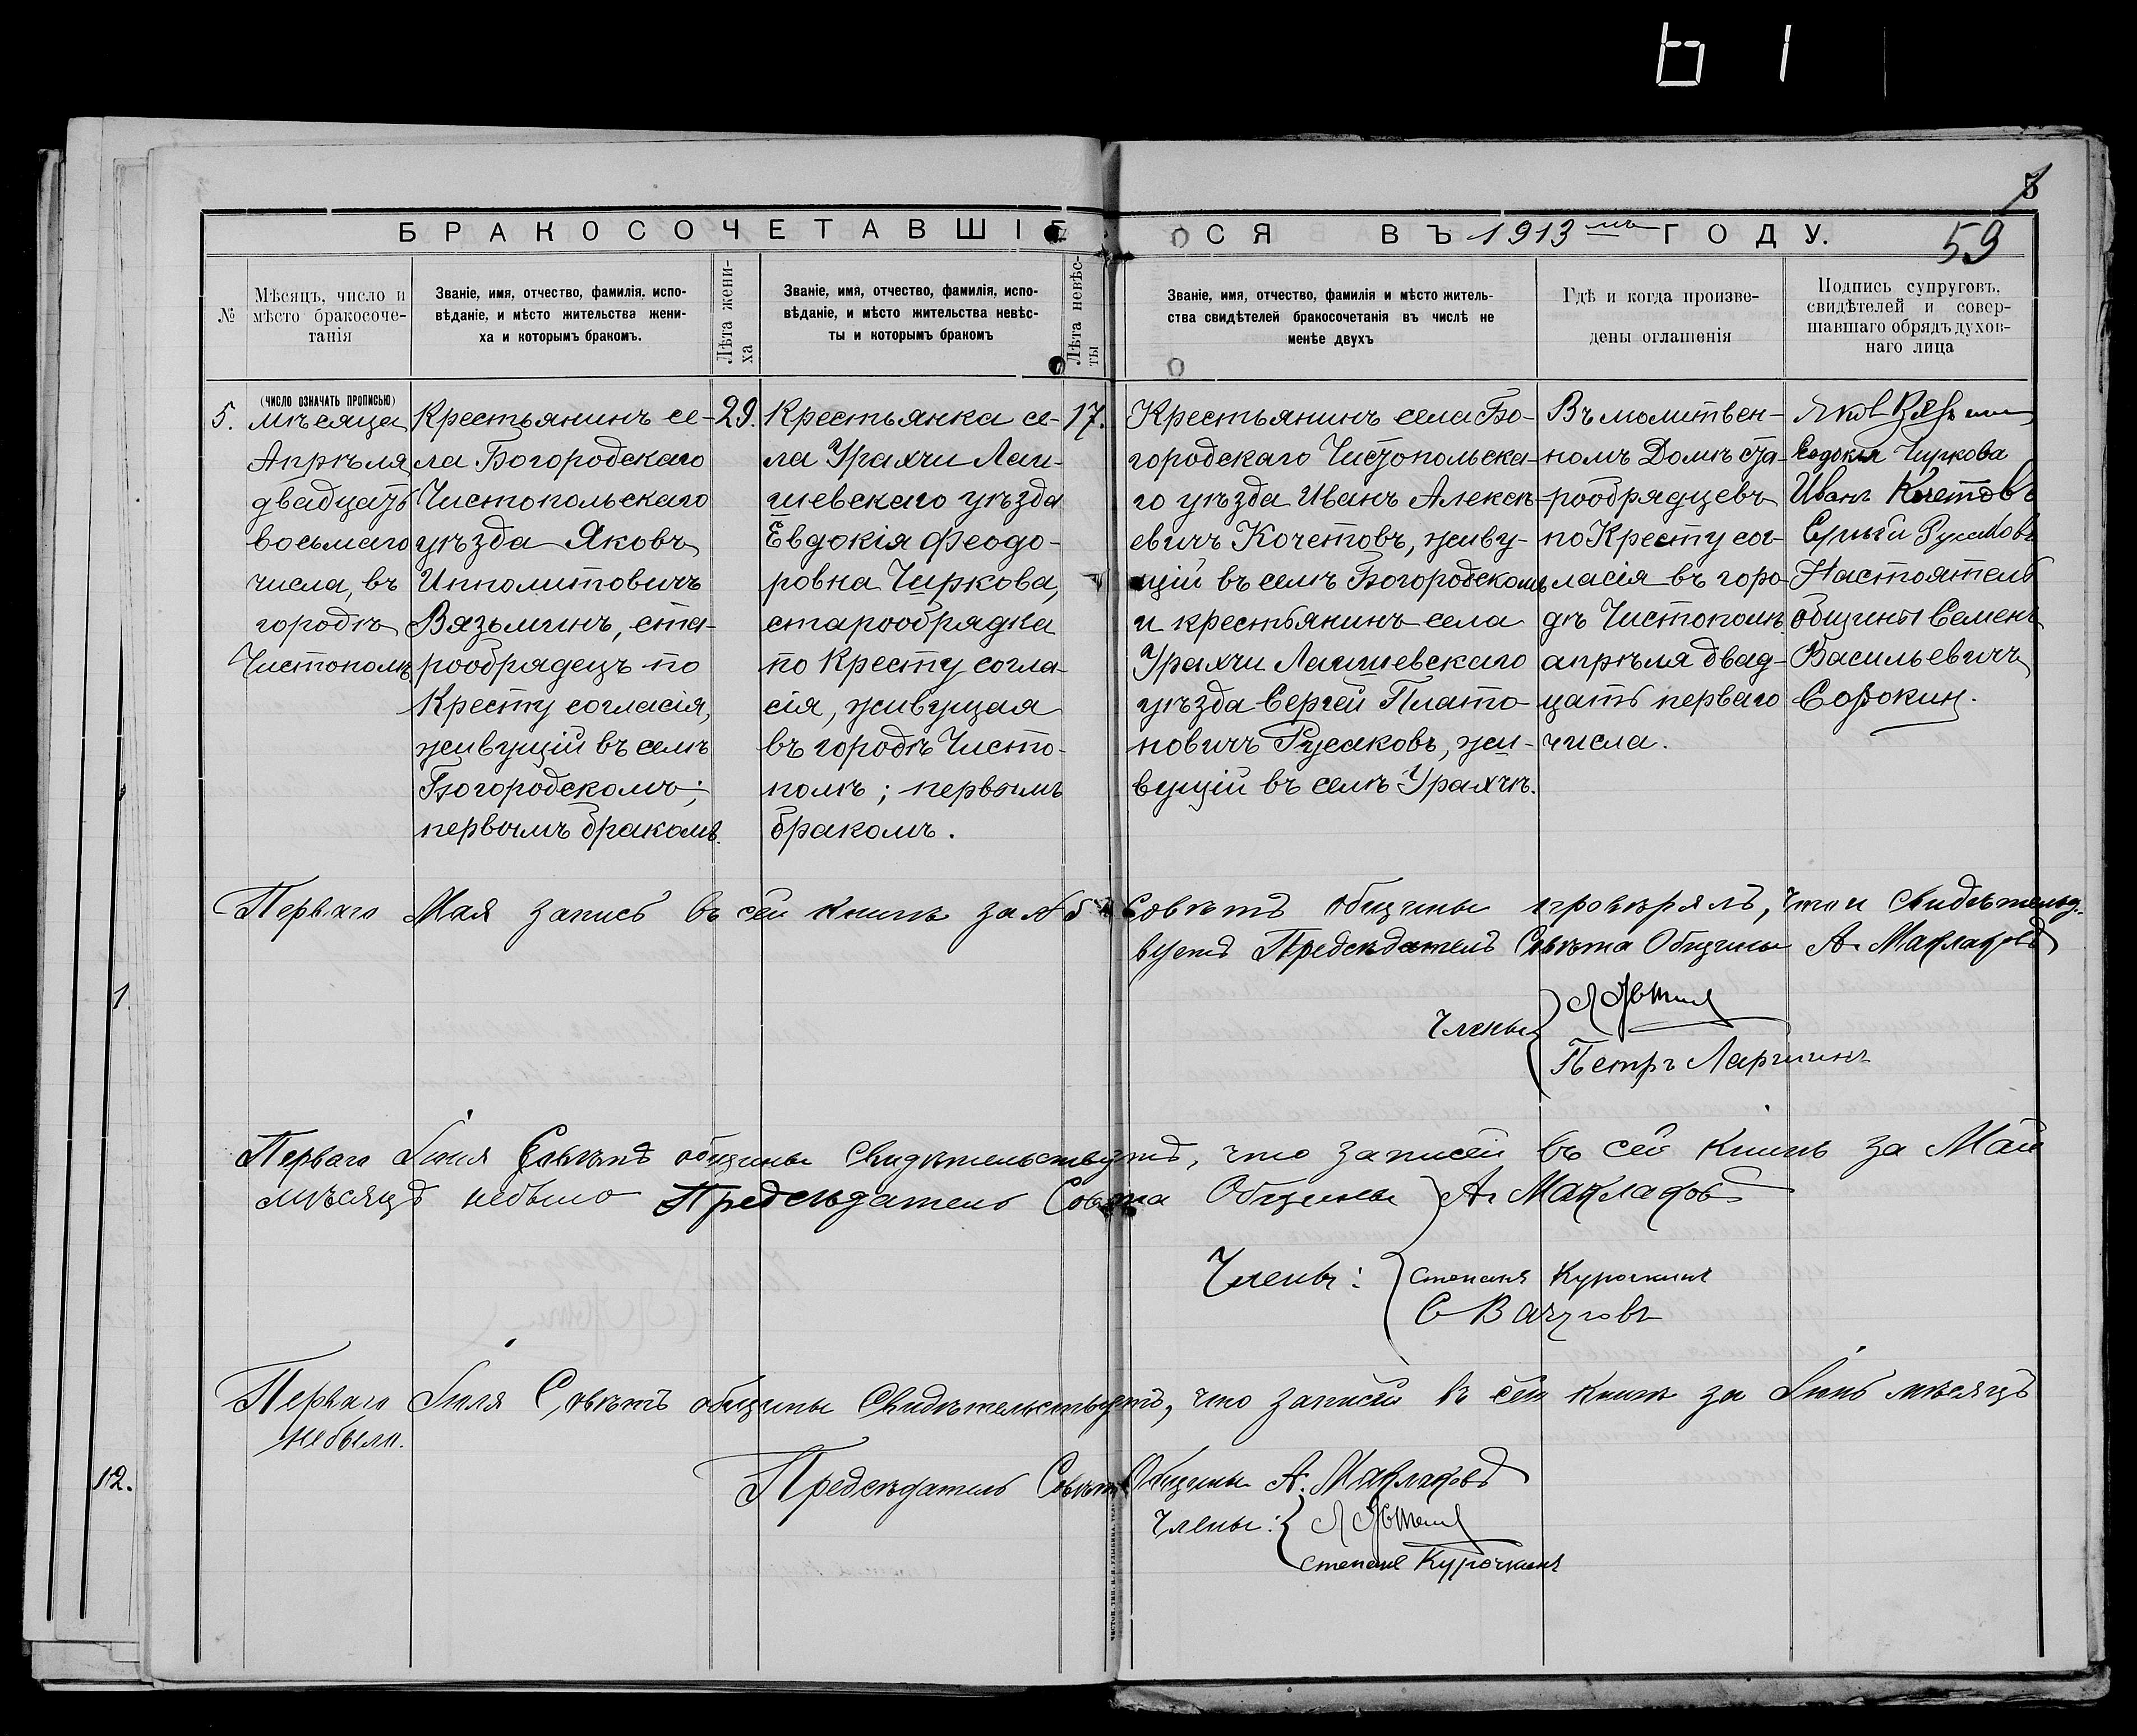 61
БРАКОСОЧЕТАВШІЕСЯ ВЪ 1913мъ ГОДУ.
59
№
Мѣсяцъ, число и
мѣсто бракосоче-
танія
Званіе, имя, отчество, фамилія, испо-
вѣданіе, и мѣсто жительства жени-
ха и которымъ бракомъ.
Лѣта жени-
ха
Званіе, имя, отчество, фамилія, испо-
вѣданіе, и мѣсто жительства невѣс-
ты и которымъ бракомъ
Лѣта невѣс-
ты
Званіе, имя, отчество, фамилія и мѣсто житель-
ства свидѣтелей бракосочетанія въ числѣ не
менѣе двухъ
Гдѣ и когда произве-
дены оглашенія
Подпись супруговъ,
свидѣтелей и совер-
шавшаго обрядъ духов-
наго лица
(число означать прописью)
5.
мѣсяца
Апрѣля
двадцать
восьмаго
числа, въ
городѣ
Чистополѣ
Крестьянинъ се-
ла Богородскаго
Чистопольскаго
уѣзда Яковъ
Ипполитовичъ
Вязьминъ, ста-
рообрядецъ по
Кресту согласія,
живущій въ селѣ
Богородскомъ;
первымъ бракомъ.
29.
Крестьянка се-
ла Урахчи Лаи-
шевскаго уѣзда
Евдокія Феодо-
ровна Чиркова,
старообрядка
по Кресту согла-
сія, живущая
въ городѣ Чисто-
полѣ; первымъ
бракомъ.
17.
Крестьянинъ села Бо-
городскаго Чистопольска-
го уѣзда Иванъ Алексѣ-
евичъ Кочетовъ, живу-
щій въ селѣ Богородскомъ
и крестьянинъ села
Урахчи Лаишевскаго
уѣзда Сергей Плато-
новичъ Русаковъ, жи-
вущій въ селѣ Урахчѣ.
Въ молитвен-
номъ Домѣ ста-
рообрядцевъ
по Кресту сог-
ласія въ горо-
дѣ Чистополѣ
апрѣля двад-
цать перваго
числа.
Яков
Евдокия Чиркова
Иванъ Кочетовъ
Русаковъ
Настоятель
общины Семенъ
Васильевичъ
Сорокин.
Перваго Мая запись въ сей книгѣ за № 5 Совѣтъ общины провѣрялъ, что и свидѣтельст-
вуетъ Предсѣдатель Совѣта Общины А. Маклаковъ
Члены
Петръ Ларишинъ
Перваго Іюня Совѣтъ общины свидѣтельствуетъ, что записей въ сей книгѣ за Май
мѣсяцъ небыло Предсѣдатель Совѣта Общины А. Маклаковъ
Члены:
Степанъ Курочкинъ
С
Перваго Іюля Совѣтъ общины свидѣтельствуетъ, что записей въ сей книгѣ за Іюнь мѣсяцъ
небыло.
Предсѣдатель Совѣта Общины А. Маклаковъ
Члены:
Степанъ Курочкинъ
1
12.